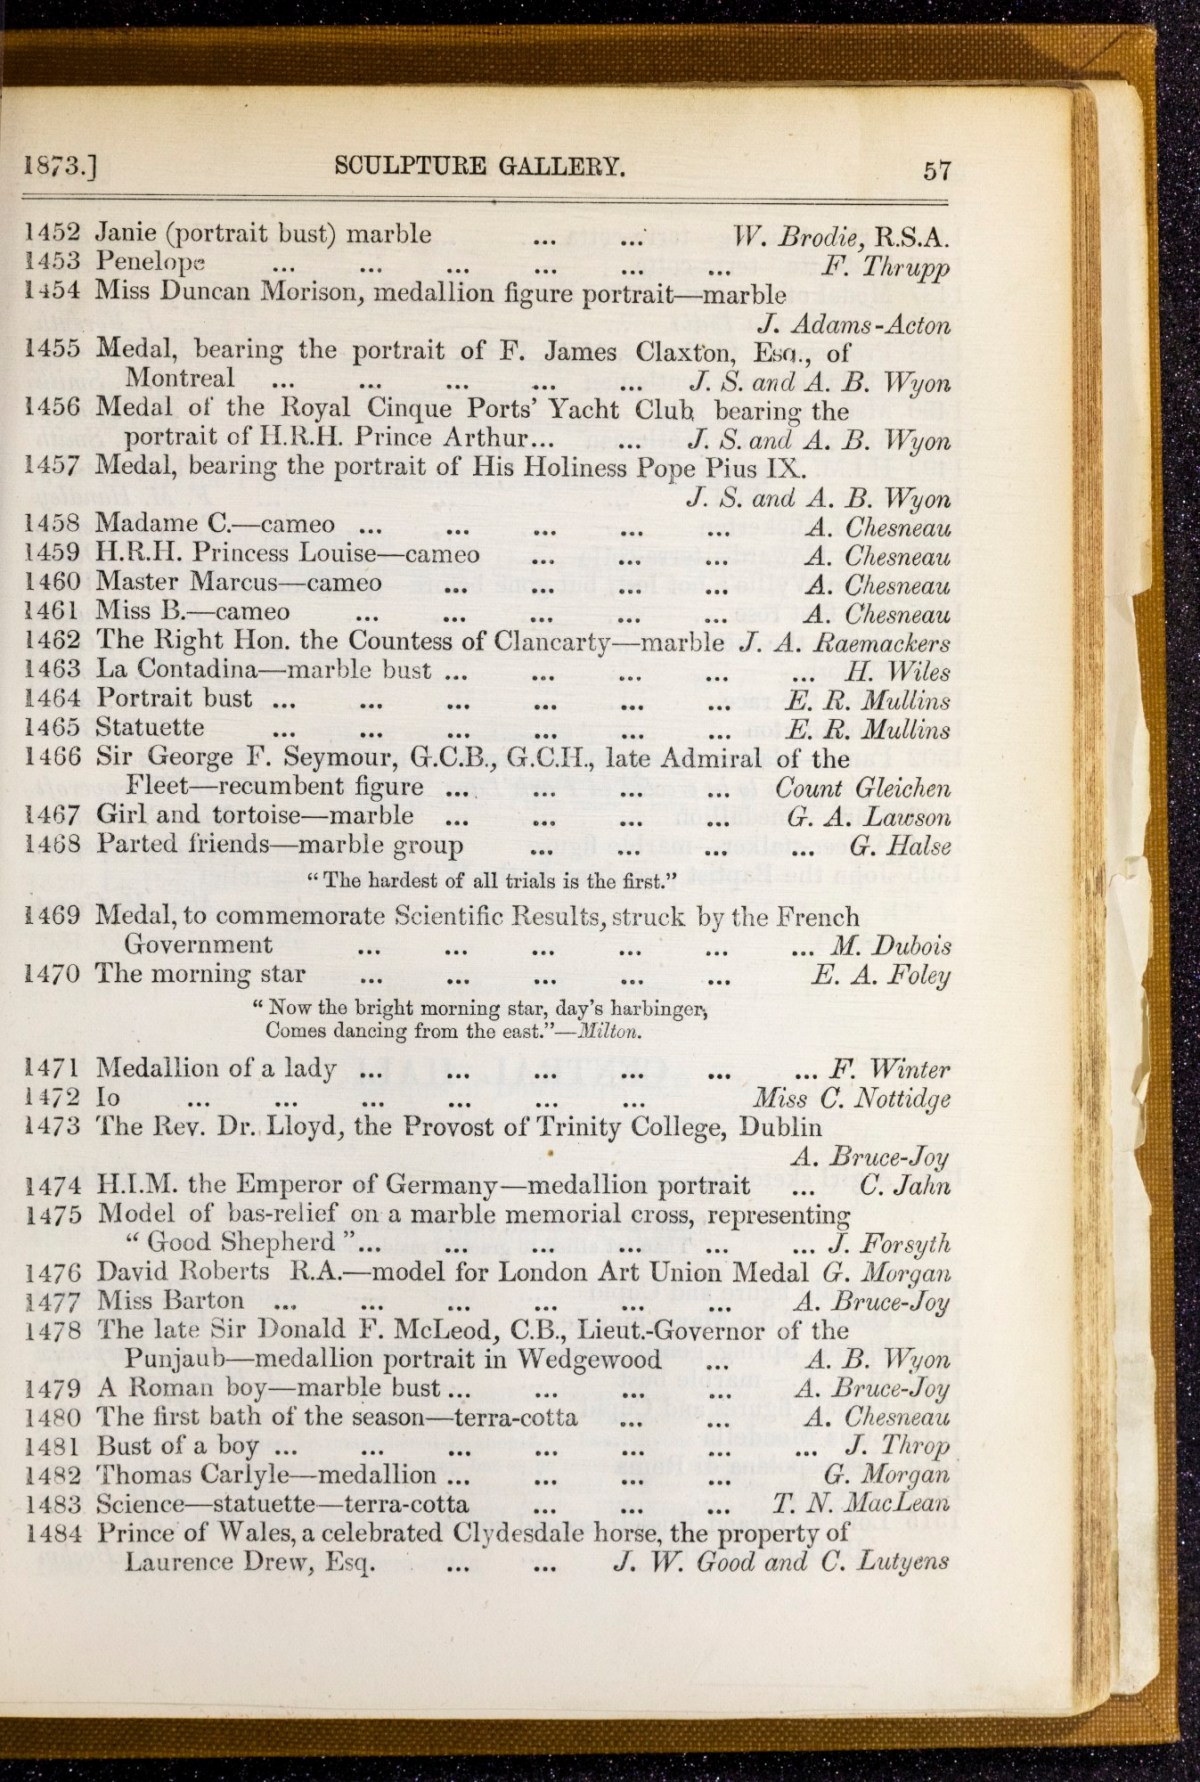 1873.] SCULPTURE GALLERY. 57
1452 Janie (portrait bust) marble ... ... W. Brodie, R.S.A.
1453 Penelope ... ... ... ... ... ... F. Thrupp
1454 Miss Duncan Morison, medallion figure portrait—marble
J. Adams-Acton
1455 Medal, bearing the portrait of F. James Claxton, Esq., of
Montreal ... ... ... ... ... J. S. and A. B. Wyon
1456 Medal of the Royal Cinque Ports' Yacht Club bearing the
portrait of H.R.H. Prince Arthur... ... J. S. and A. B. Wyon
1457 Medal, bearing the portrait of His Holiness Pope Pius IX.
J. S. and A. B. Wyon
1458 Madame C.—cameo ... ... ... ... ... A. Chesneau
1459 H.R.H. Princess Louise—cameo ... ... ... A. Chesneau
1460 Master Marcus—cameo ... ... ... ... A. Chesneau
1461 Miss B.—cameo ... ... ... ... ... A. Chesneau
1462 The Right Hon. the Countess of Clancarty—marble J. A. Raemackers
1463 La Contadina—marble bust ... ... ... ... ... H. Wiles
1464 Portrait bust ... ... ... ... ... ... E. R. Mullins
1465 Statuette ... ... ... ... ... ... E. R. Mullins
1466 Sir George F. Seymour, G.C.B., G.C.H., late Admiral of the
Fleet—recumbent figure ... ... ... ... Count Gleichen
1467 Girl and tortoise—marble ... ... ... ... G. A. Lawson
1468 Parted friends—marble group ... ... ... ... G. Halse
"The hardest of all trials is the first."
1469 Medal, to commemorate Scientific Results, struck by the French
Government ... ... ... ... ... ... M. Dubois
1470 The morning star ... ... ... ... ... E. A. Foley
"Now the bright morning star, day's harbinger,
Comes dancing from the east."—Milton.
1471 Medallion of a lady ... ... ... ... ... ... F. Winter
1472 Io ... ... ... ... ... ... Miss C. Nottidge
1473 The Rev. Dr. Lloyd, the Provost of Trinity College, Dublin
A. Bruce-Joy
1474 H.I.M. the Emperor of Germany—medallion portrait ... C. Jahn
1475 Model of bas-relief on a marble memorial cross, representing
"Good Shepherd"... ... ... ... ... ... J. Forsyth
1476 David Roberts R.A.—model for London Art Union Medal G. Morgan
1477 Miss Barton ... ... ... ... ... ... A. Bruce-Joy
1478 The late Sir Donald F. McLeod, C.B., Lieut.-Governor of the
Punjaub—medallion portrait in Wedgewood ... A. B. Wyon
1479 A Roman boy—marble bust ... ... ... ... A. Bruce-Joy
1480 The first bath of the season—terra-cotta ... ... A. Chesneau
1481 Bust of a boy ... ... ... ... ... ... ... J. Throp
1482 Thomas Carlyle—medallion ... ... ... ... G. Morgan
1483 Science—statuette—terra-cotta ... ... ... T. N. MacLean
1484 Prince of Wales, a celebrated Clydesdale horse, the property of
Laurence Drew, Esq. ... ... J. W. Good and C. Lutyens